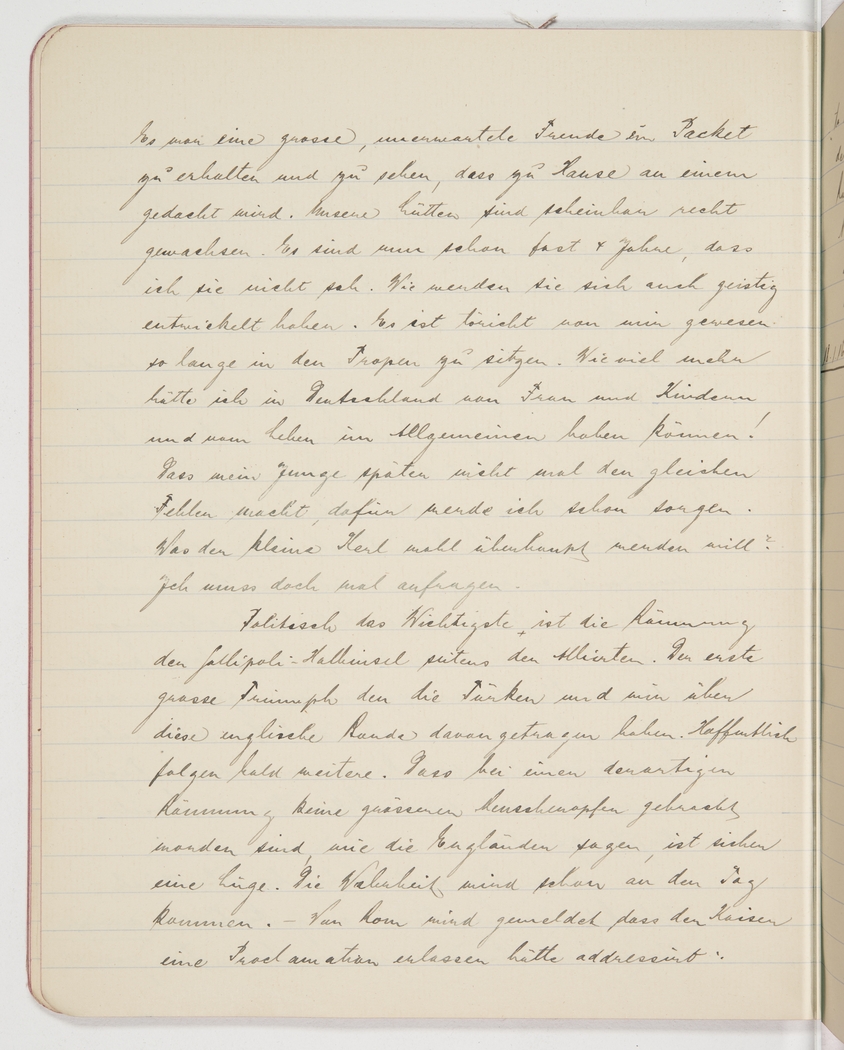 Es war eine grosse, unerwartete Freude ein Packet
zu erhalten und zu sehen, dass zu Hause an einem
gedacht wird. Unsere Lütten sind scheinbar recht
gewachsen. Es sind nun schon fast 4 Jahre, dass
ich sie nicht sah. Wie werden sie sich auch geistig
entwickelt haben. Es ist töricht von mir gewesen
so lange in den Tropen zu sitzen. Wieviel mehr
hätte ich in Deutschland von Frau und Kindern
und vom Leben im Allgemeinen haben können!
Dass mein Junge später nicht mal den gleichen
Fehler macht, dafür werde ich schon sorgen.
Was der kleine Kerl wohl überhaupt werden will?
Ich muss doch mal anfragen.
Politisch das Wichtigste, ist die Räumung
der Gallipoli-Halbinsel seitens der Alliirten. Der erste
grosse Triumph den die Türken und wir über
diese englische Bande davongetragen haben. Hoffentlich
folgen bald weitere. Dass bei einer derartigen
Räumung keine grösseren Menschenopfer gebracht
worden sind, wie die Engländer sagen, ist sicher
eine Lüge. Die Wahrheit wird schon an den Tag
kommen. – Von Rom wird gemeldet dass der Kaiser
eine Proclamation erlassen hätte addressirt: